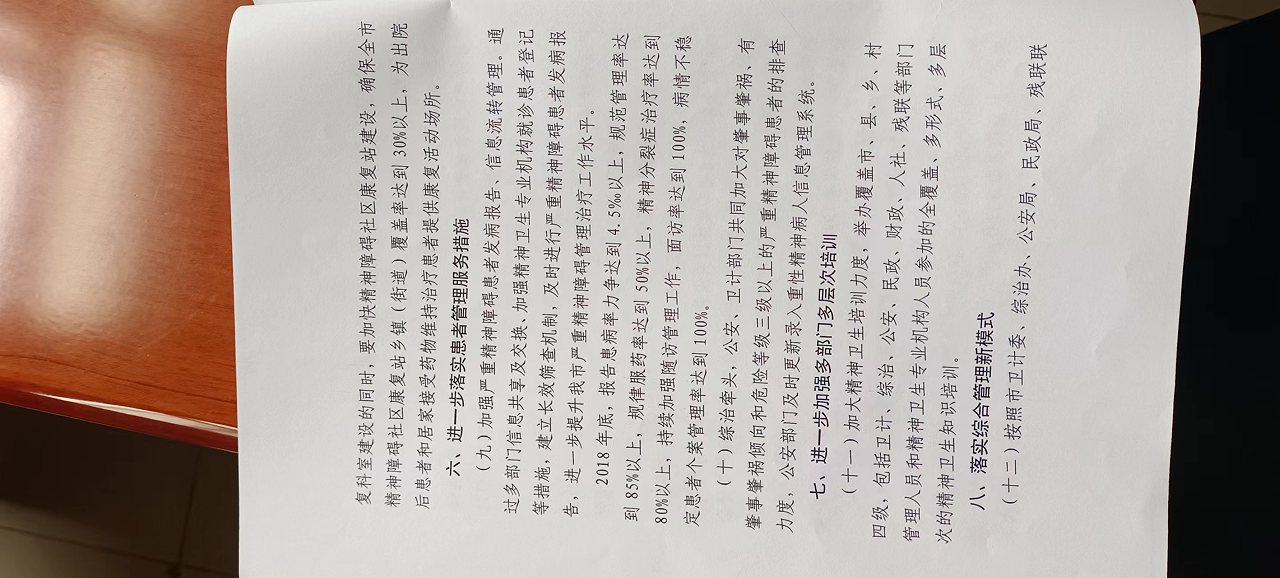 复科室建设的同时，要加快精神障碍社区康复站建设，确保全市
精神障碍社区康复站乡镇（街道）覆盖率达到30%以上，为出院
后患者和居家接受药物维持治疗患者提供康复活动场所。
六、进一步落实患者管理服务措施
（九）加强严重精神障碍患者发病报告、信息流转管理。通
过多部门信息共享及交换、加强精神卫生专业机构就诊患者登记
等措施，建立长效筛查机制，及时进行严重精神障碍患者发病报
告，进一步提升我市严重精神障碍管理治疗工作水平。
2018年底，报告患病率力争达到4.5‰以上，规范管理率达
到85%以上，规律服药率达到50%以上，精神分裂症治疗率达到
80%以上，持续加强随访管理工作，面访率达到100%，病情不稳
定患者个案管理率达到100%。
（十）综治牵头，公安、卫计部门共同加大对肇事肇祸、有
肇事肇祸倾向和危险等级三级以上的严重精神障碍患者的排查
力度，公安部门及时更新录入重性精神病人信息管理系统。
七、进一步加强多部门多层次培训
（十一）加大精神卫生培训力度，举办覆盖市、县、乡、村
四级，包括卫计、综治、公安、民政、财政、人社、残联等部门
管理人员和精神卫生专业机构人员参加的全覆盖、多形式、多层
次的精神卫生知识培训。
八、落实综合管理新模式
（十二）按照市卫计委、综治办、公安局、民政局、残联联